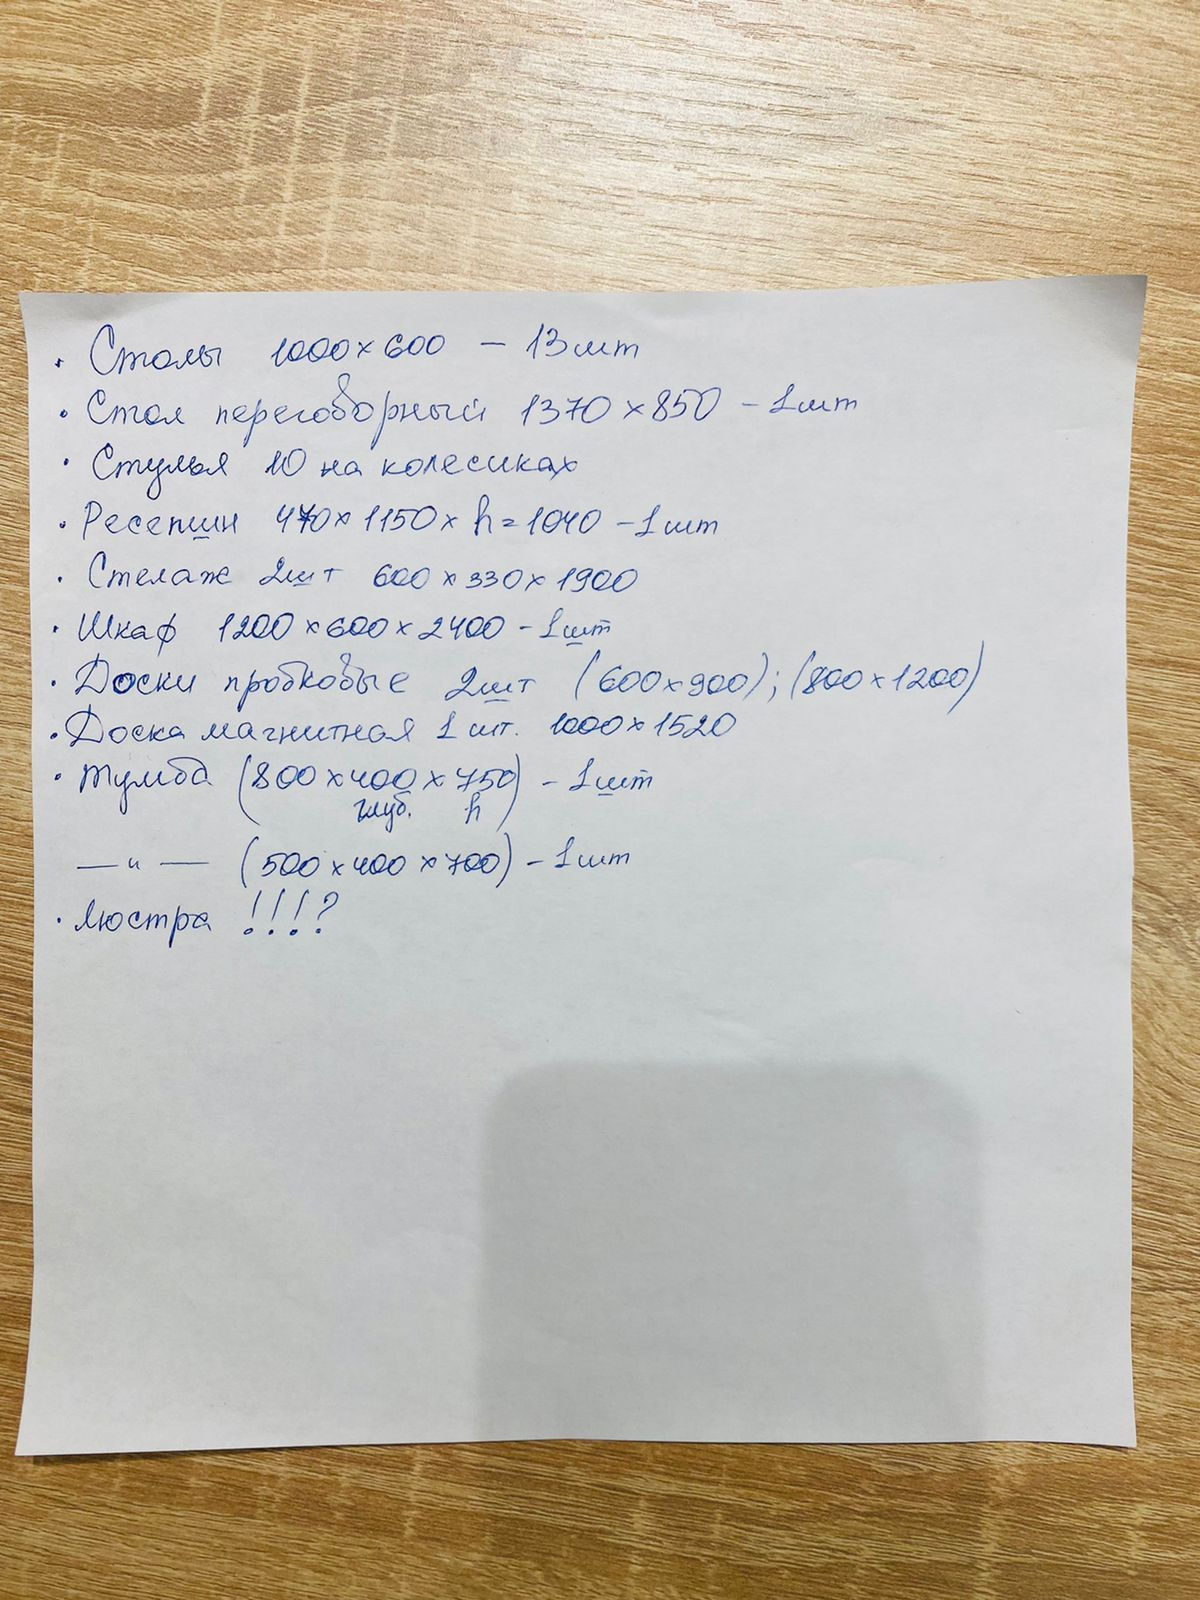 · Столы 1000×600 – 13 шт
· Стол переговорный 1370×850 – 1 шт
· Стулья 10 на колесиках
· Ресепшн 470×1150×h=1040 – 1 шт
· Стелаж 2 шт 600×330×1900
· Шкаф 1200×600×2400 – 1 шт
· Доски пробковые 2 шт (600×900); (800×1200)
· Доска магнитная 1 шт. 1000×1520
· Тумба (800×400×750) – 1 шт
глуб. h
— и — (500×400×700) – 1 шт
· Люстра !!!?